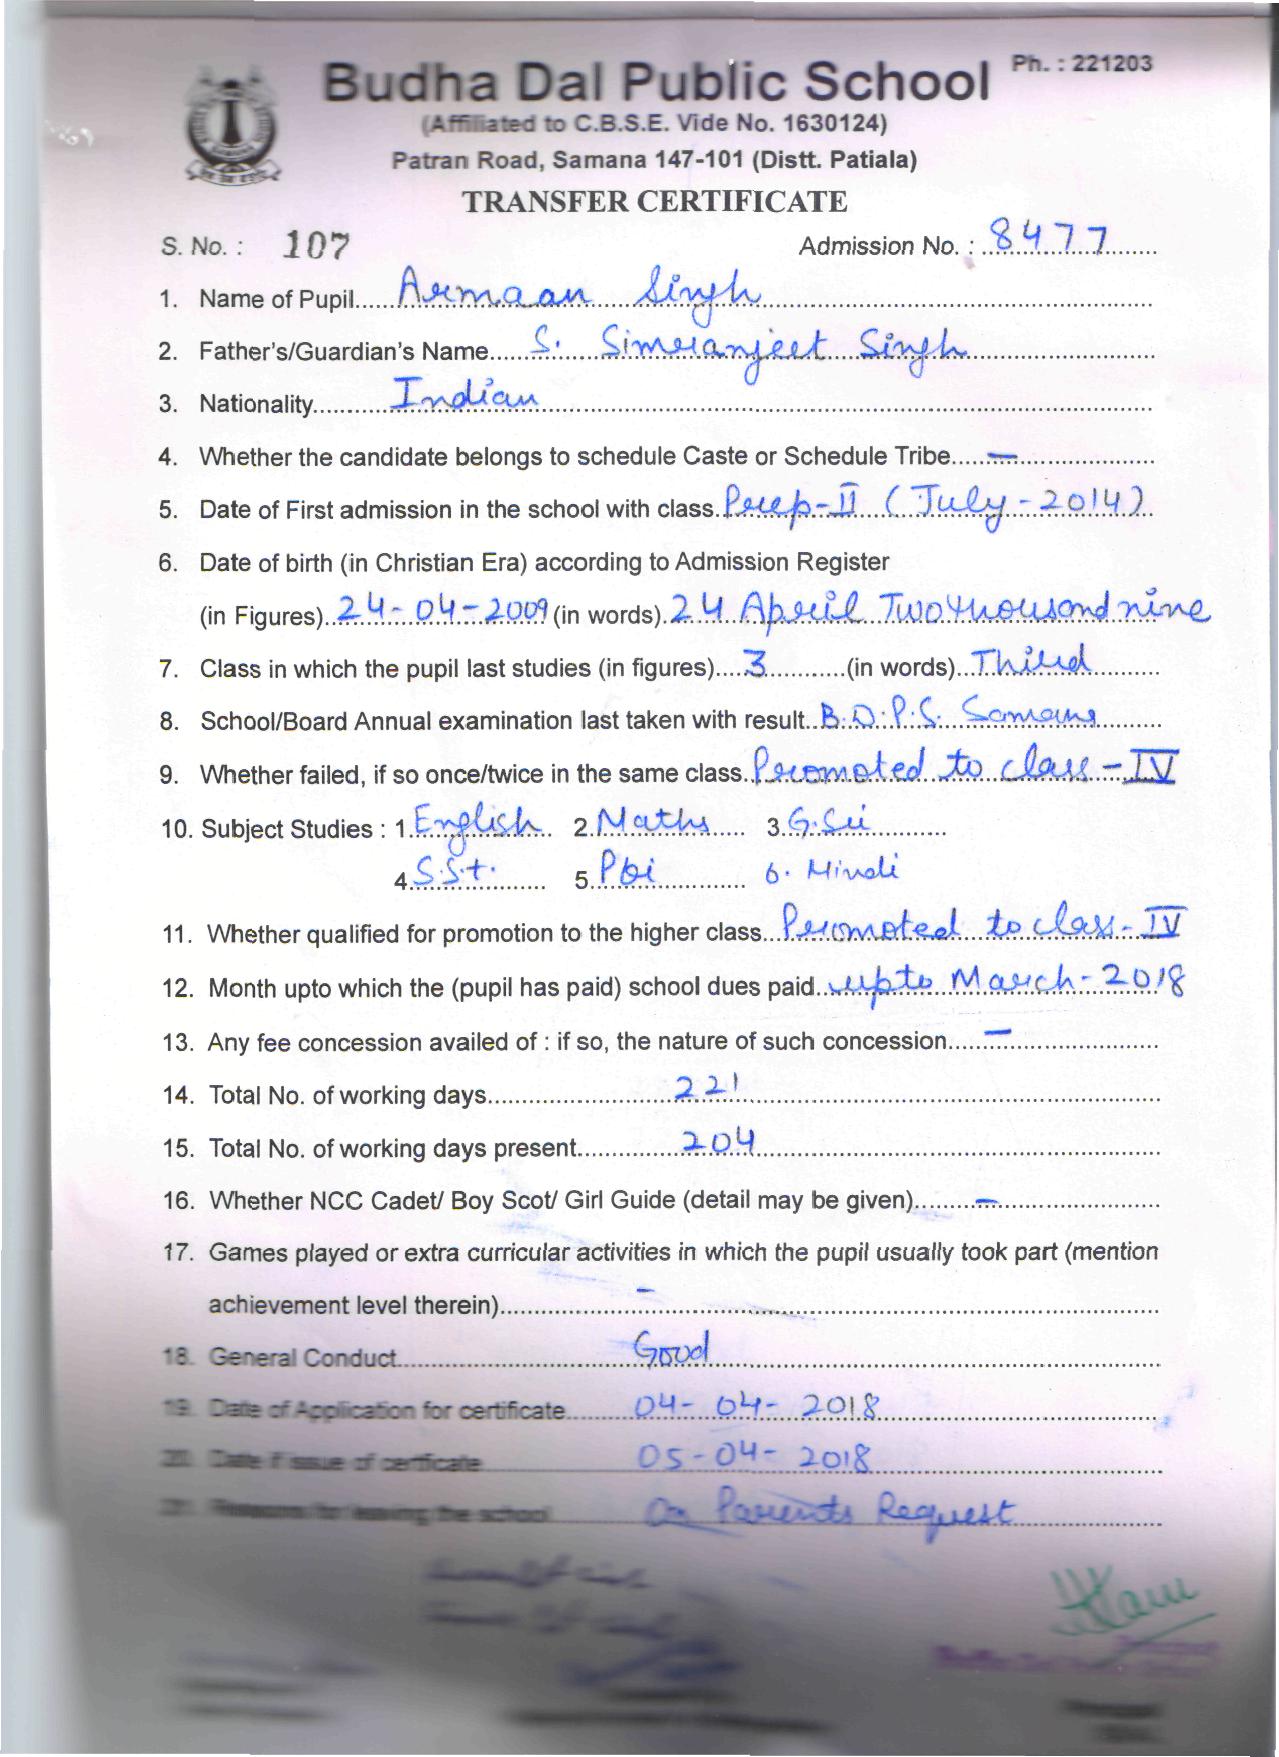 Budha Dal Public School
Ph. : 221203
(Affiliated to C.B.S.E. Vide No. 1630124)
Patran Road, Samana 147-101 (Distt. Patiala)
TRANSFER CERTIFICATE
S. No. : 107 Admission No. : 8477
1. Name of Pupil Armaan Singh
2. Father's/Guardian's Name S. Simranjeet Singh
3. Nationality Indian
4. Whether the candidate belongs to schedule Caste or Schedule Tribe –
5. Date of First admission in the school with class. Prep-II (July-2014)
6. Date of birth (in Christian Era) according to Admission Register
(in Figures) 24-04-2009 (in words) 24 April Two thousand nine
7. Class in which the pupil last studies (in figures) 3 (in words) Third
8. School/Board Annual examination last taken with result B.D.P.S. Samana
9. Whether failed, if so once/twice in the same class. Promoted to class-IV
10. Subject Studies : 1. English 2. Maths 3. G.Sci
4. S.St. 5. Pbi 6. Hindi
11. Whether qualified for promotion to the higher class Promoted to class-IV
12. Month upto which the (pupil has paid) school dues paid upto March-2018
13. Any fee concession availed of : if so, the nature of such concession –
14. Total No. of working days 221
15. Total No. of working days present 204
16. Whether NCC Cadet/ Boy Scot/ Girl Guide (detail may be given) –
17. Games played or extra curricular activities in which the pupil usually took part (mention
achievement level therein) –
18. General Conduct Good
19. Date of Application for certificate 04-04-2018
20. Date if issue of certficate 05-04-2018
21. Reasons for leaving the school On Parents Request